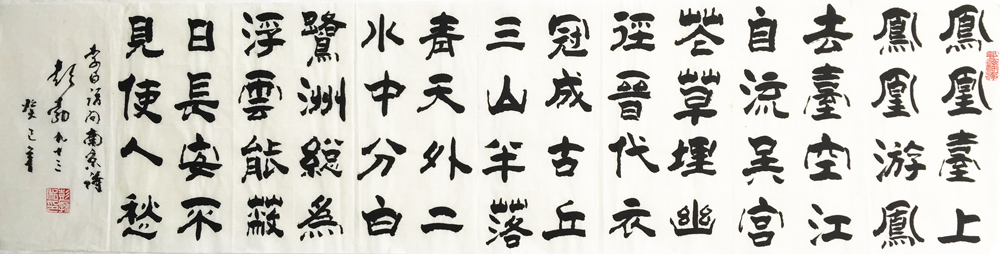 鳳凰臺上
鳳凰游鳳
去臺空江
自流吳宮
花草埋幽
徑晉代衣
冠成古丘
三山半落
青天外二
水中分白
鷺洲總為
浮雲能蔽
日長安不
見使人愁
李白
彭勃九十二
癸巳年